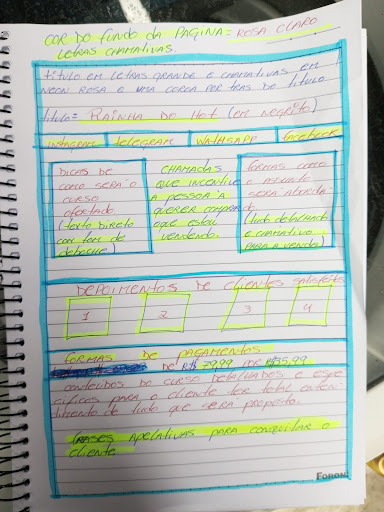 COR DO FUNDO DA PAGINA = ROSA CLARO
LETRAS CHAMATIVAS.
título em LETRAS GRANDE E CHAMATIVAS EM
NEON ROSA E UMA COROA POR TRAS DO TITULO
título = RAINHA DO HOT (em negrito)
instagram telegram WATHSAPP facebook
DICAS DE
COMO SERÁ O
CURSO
ofertado
(texto DIRETO
com tom de
deboche)
CHAMADAS
QUE INCENTIVE
A PESSOA A
QUERER COMPRAR
O QUE ESTOU
VENDENDO.
FORMAS COMO
O ASSUNTO
SERÁ ABORDA
(tudo detalhado
E CHAMATIVO
PARA A VENDA)
DEPOIMENTOS DE CLIENTES SATISFEITOS
1 2 3 4
FORMAS DE PAGAMENTOS
DE R$ 79,99 POR R$35,99
CONTEUDOS DO CURSO DETALHADOS E ESPE
CIFICOS PARA O CLIENTE TER TOTAL ENTEN
DIMENTO DE TUDO QUE SERÁ PROPOSTO.
FRASES APELATIVAS PARA CONQUISTAR O
CLIENTE
Foroni